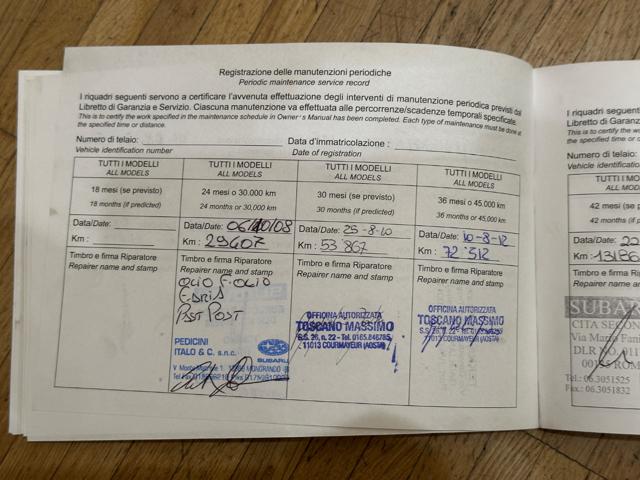 Registrazione delle manutenzioni periodiche
Periodic maintenance service record
I riquadri seguenti servono a certificare l'avvenuta effettuazione degli interventi di manutenzione periodica previsti dal
Libretto di Garanzia e Servizio. Ciascuna manutenzione va effettuata alle percorrenze/scadenze temporali specificate.
This is to certify the work specified in the maintenance schedule in Owner's Manual has been completed. Each type of maintenance must be done at
the specified time or distance.
Numero di telaio:
Vehicle identification number
Data d'immatricolazione :
Date of registration
TUTTI I MODELLI
ALL MODELS
18 mesi (se previsto)
18 months (if predicted)
Data/Date:
Km :
Timbro e firma Riparatore
Repairer name and stamp
TUTTI I MODELLI
ALL MODELS
24 mesi o 30.000 km
24 months or 30,000 km
Data/Date: 06/10/08
Km : 29607
Timbro e firma Riparatore
Repairer name and stamp
OLIO F.OLIO
PAST POST
PEDICINI
ITALO & C. s.n.c.
SUBARU
TUTTI I MODELLI
ALL MODELS
30 mesi (se previsto)
30 months (if predicted)
Data/Date: 25-8-10
Km : 53'867
Timbro e firma Riparatore
Repairer name and stamp
OFFICINA AUTORIZZATA
TOSCANO MASSIMO
S.S. 26, n. 22 - Tel. 0165.846785
11013 COURMAYEUR (AOSTA)
TUTTI I MODELLI
ALL MODELS
36 mesi o 45.000 km
36 months or 45,000 km
Data/Date: 10-8-12
Km : 72'512
Timbro e firma Riparatore
Repairer name and stamp
OFFICINA AUTORIZZATA
TOSCANO MASSIMO
S.S. 26, n. 22 - Tel.
11013 COURMAYEUR (AOSTA)
I riquadri seguenti
Libretto di Garanzia
This is to certify the work
the specified time or
Numero di telaio:
Vehicle identification
TUTTI I
ALL
42 mesi
42 months (if
Data/Date:
Km :
Timbro e firma
Repairer name
SUBAR
CITA SECON
Via Mario Fani
00135 ROM
Tel.: 06.3051525
Fax: 06.3051832